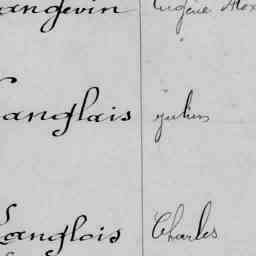 angevin Eugène Alex
anglais Julien
Langlois Charles